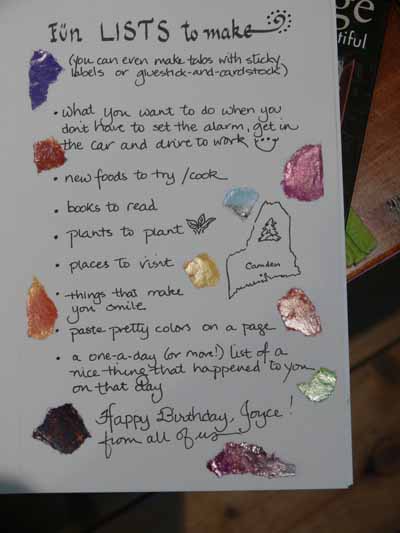 Fün LISTS to make
(you can even make tabs with sticky
labels or gluestick-and-cardstock)
• what you want to do when you
don't have to set the alarm, get in
the car and drive to work
• new foods to try / cook
• books to read
• plants to plant
• places to visit
Camden
• things that make
you smile
• paste pretty colors on a page
• a one-a-day (or more!) list of a
nice thing that happened to you
on that day
Happy Birthday, Joyce!
from all of us
ge
tiful